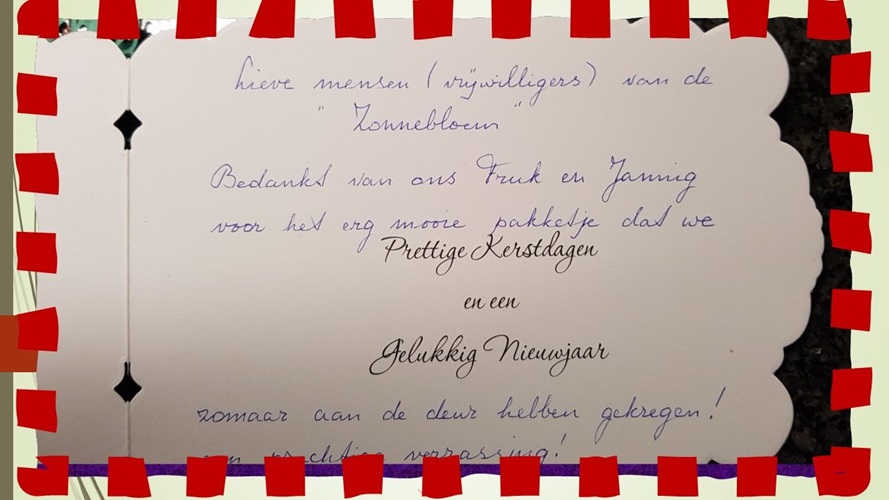 Lieve mensen (vrijwilligers) van de
"Zonnebloem"
Bedankt van ons Truk en Jannig
voor het erg mooie pakketje dat we
Prettige Kerstdagen
en een
Gelukkig Nieuwjaar
zomaar aan de deur hebben gekregen!
een prachtige verrassing!